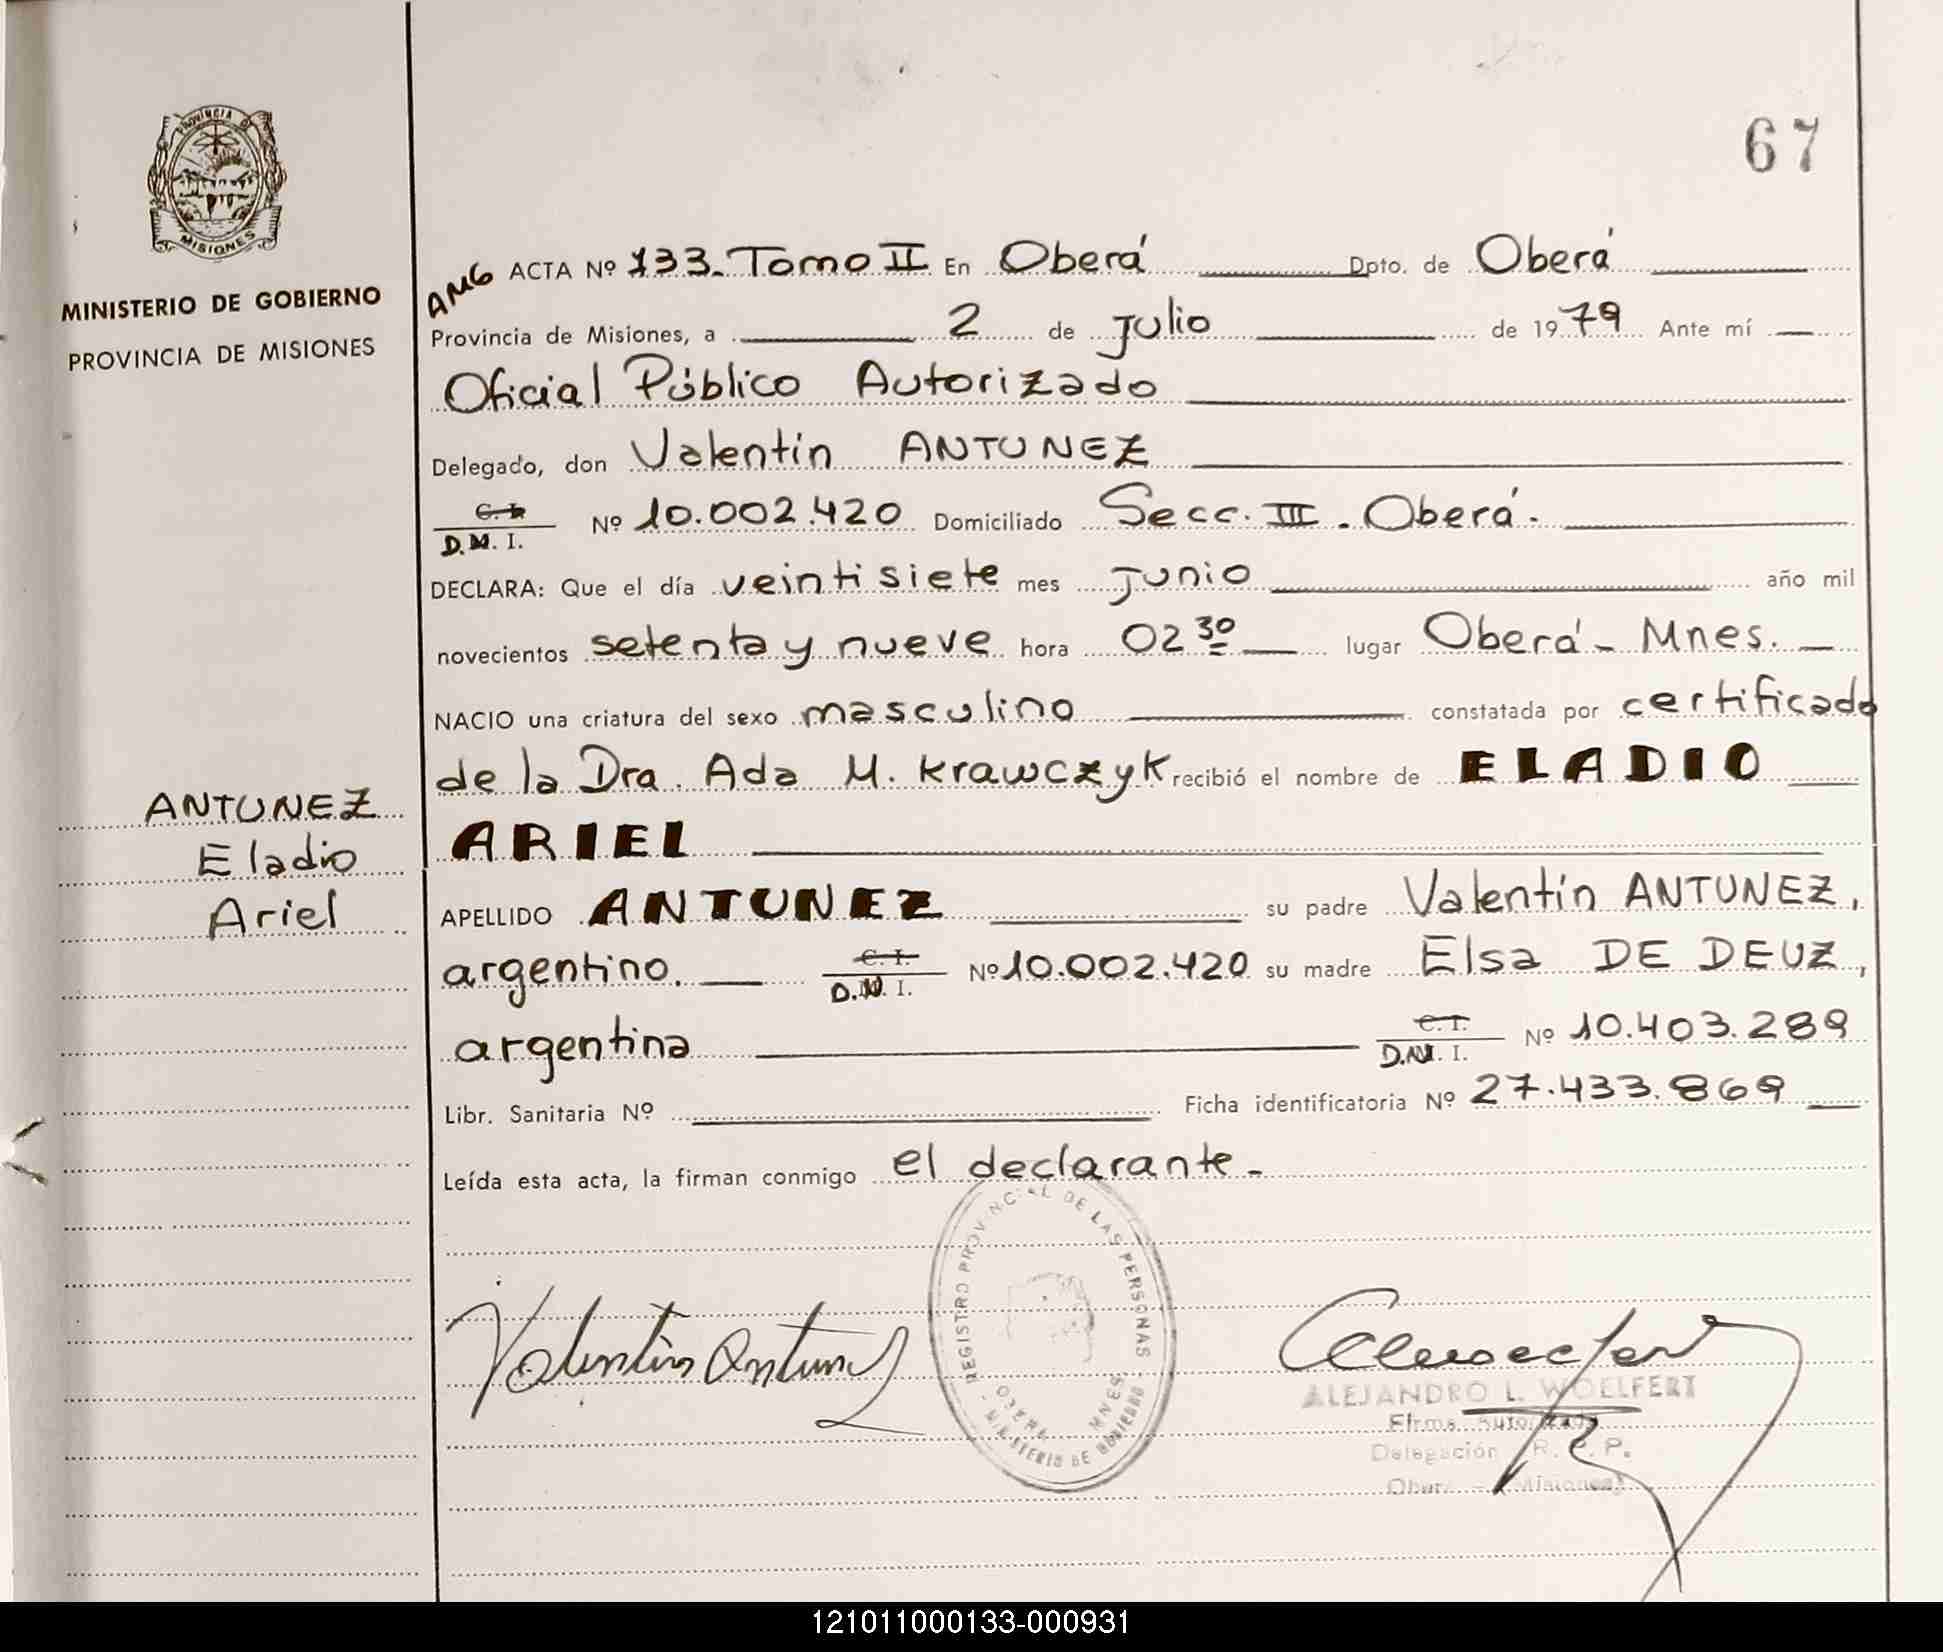 67
PROVINCIA DE
MISIONES
MINISTERIO DE GOBIERNO
PROVINCIA DE MISIONES
AMG ACTA Nº 133. Tomo II En Oberá Dpto. de Oberá
Provincia de Misiones, a 2 de Julio de 1979 Ante mí
Oficial Público Autorizado
Delegado, don Valentín ANTUNEZ
C. I.
D.N. I. Nº 10.002.420 Domiciliado Secc. III. Oberá.
DECLARA: Que el día veintisiete mes junio año mil
novecientos setenta y nueve hora 02 30 lugar Oberá - Mnes.
NACIO una criatura del sexo masculino constatada por certificado
de la Dra. Ada M. Krawczyk recibió el nombre de ELADIO
ARIEL
ANTUNEZ
Eladio
Ariel
APELLIDO ANTUNEZ su padre Valentín ANTUNEZ,
argentino. C. I.
D.N. I. Nº 10.002.420 su madre Elsa DE DEUZ,
argentina C. I.
D.N. I. Nº 10.403.289
Libr. Sanitaria Nº Ficha identificatoria Nº 27.433.869
Leída esta acta, la firman conmigo el declarante.-
REGISTRO PROVINCIAL DE LAS PERSONAS
OBERA MNES.
MINISTERIO DE GOBIERNO
Valentin Antunez
ALEJANDRO L. WOELFERT
Firma Autorizada
Delegación R. P. P.
Oberá - (Misiones)
121011000133-000931